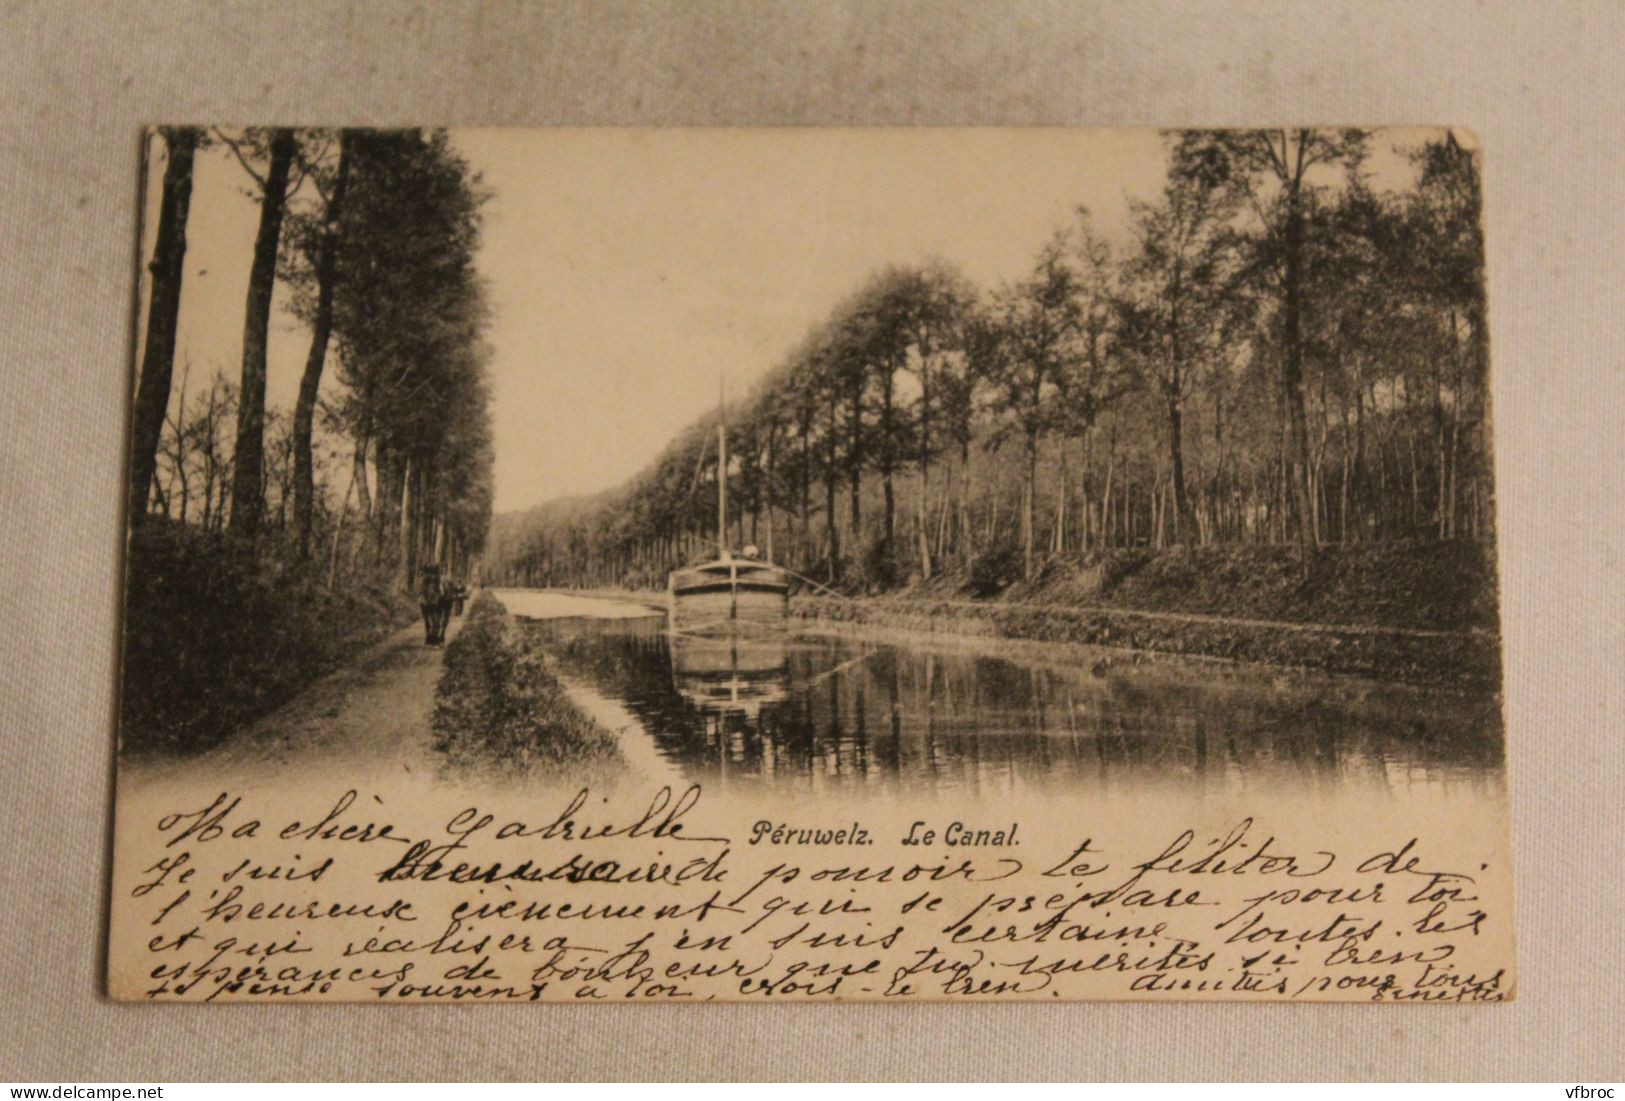 Ma chère Gabrielle
Péruwelz. Le Canal.
Je suis heureuse de pouvoir te féliter de
l'heureux évènement qui se prépare pour toi
et qui réalisera j'en suis certaine toutes les
espérances de bonheur que tu mérites si bien
Je pense souvent à toi, crois-le bien. Amitiés pour tous
Ernestis
delcampe.net
vfbroc